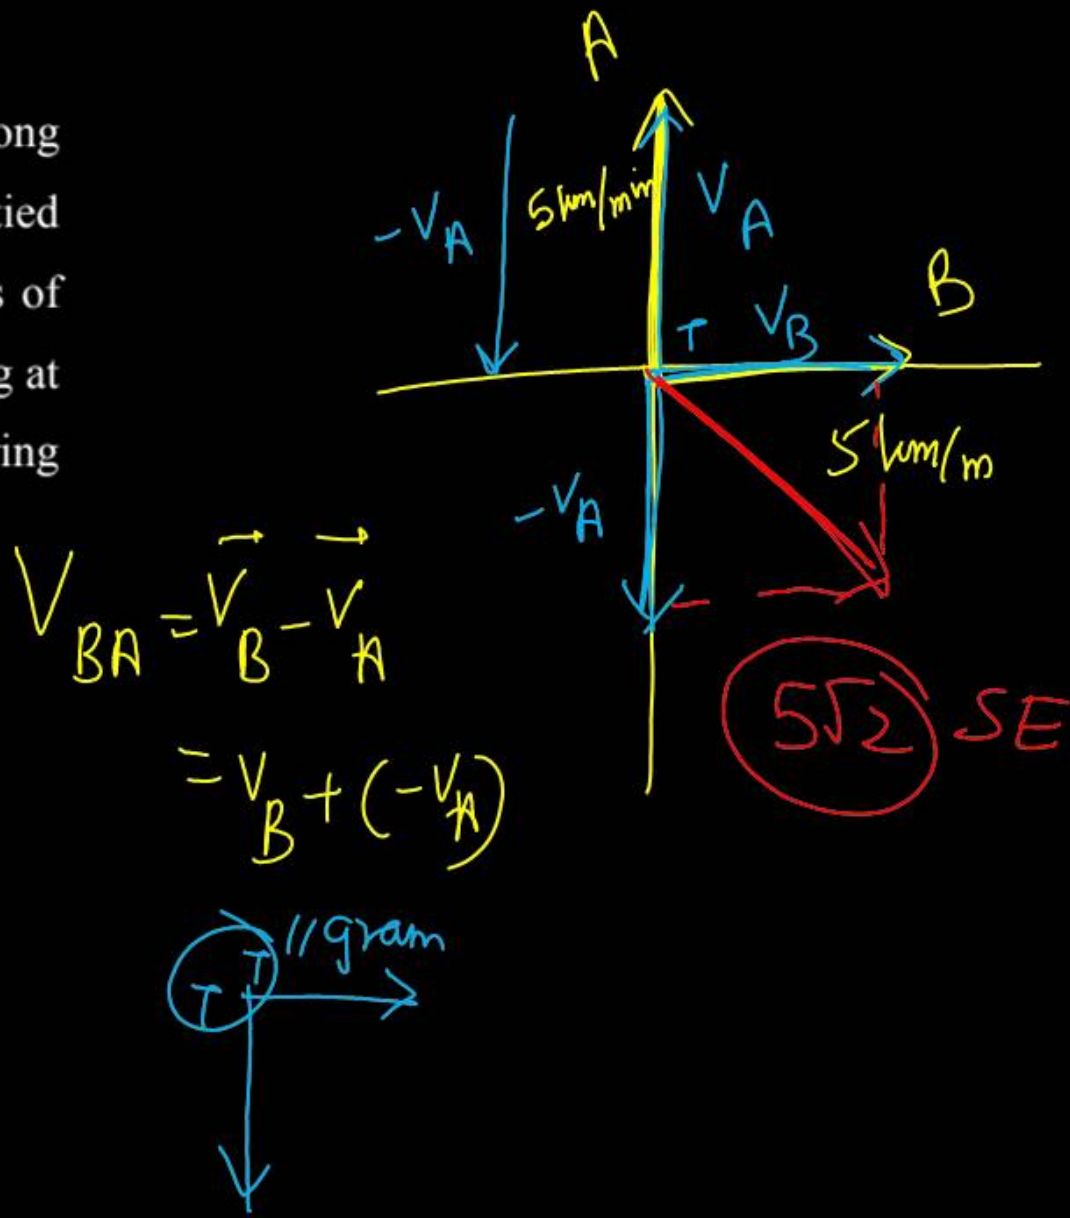 ong
tied
s of
g at
ing
A
-VA
5 km/min
VA
B
T
VB
5 km/m
-VA
VBA = VB - VA
= VB + (-VA)
5√2 SE
//gram
T
T